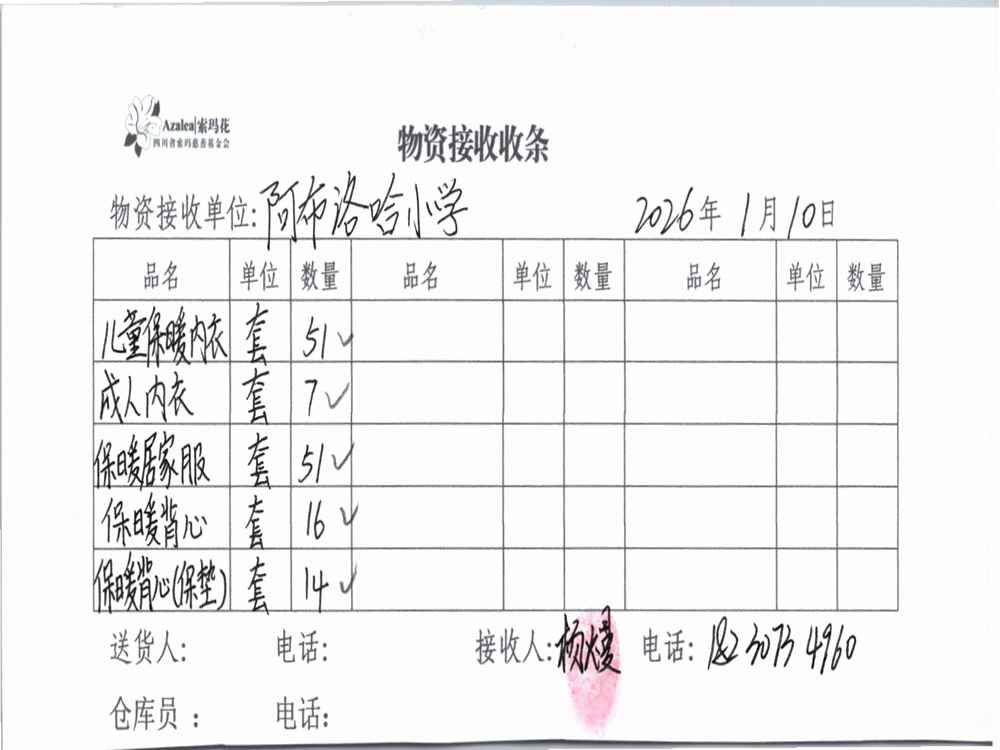 Azalea|索玛花
四川省索玛慈善基金会
物资接收收条
物资接收单位: 阿布洛哈小学 2026年 1月10日
品名 单位 数量 品名 单位 数量 品名 单位 数量
儿童保暖内衣 套 51 ✓
成人内衣 套 7 ✓
保暖居家服 套 51 ✓
保暖背心 套 16 ✓
保暖背心(保垫) 套 14 ✓
送货人: 电话: 接收人: 杨 电话:
仓库员 : 电话: